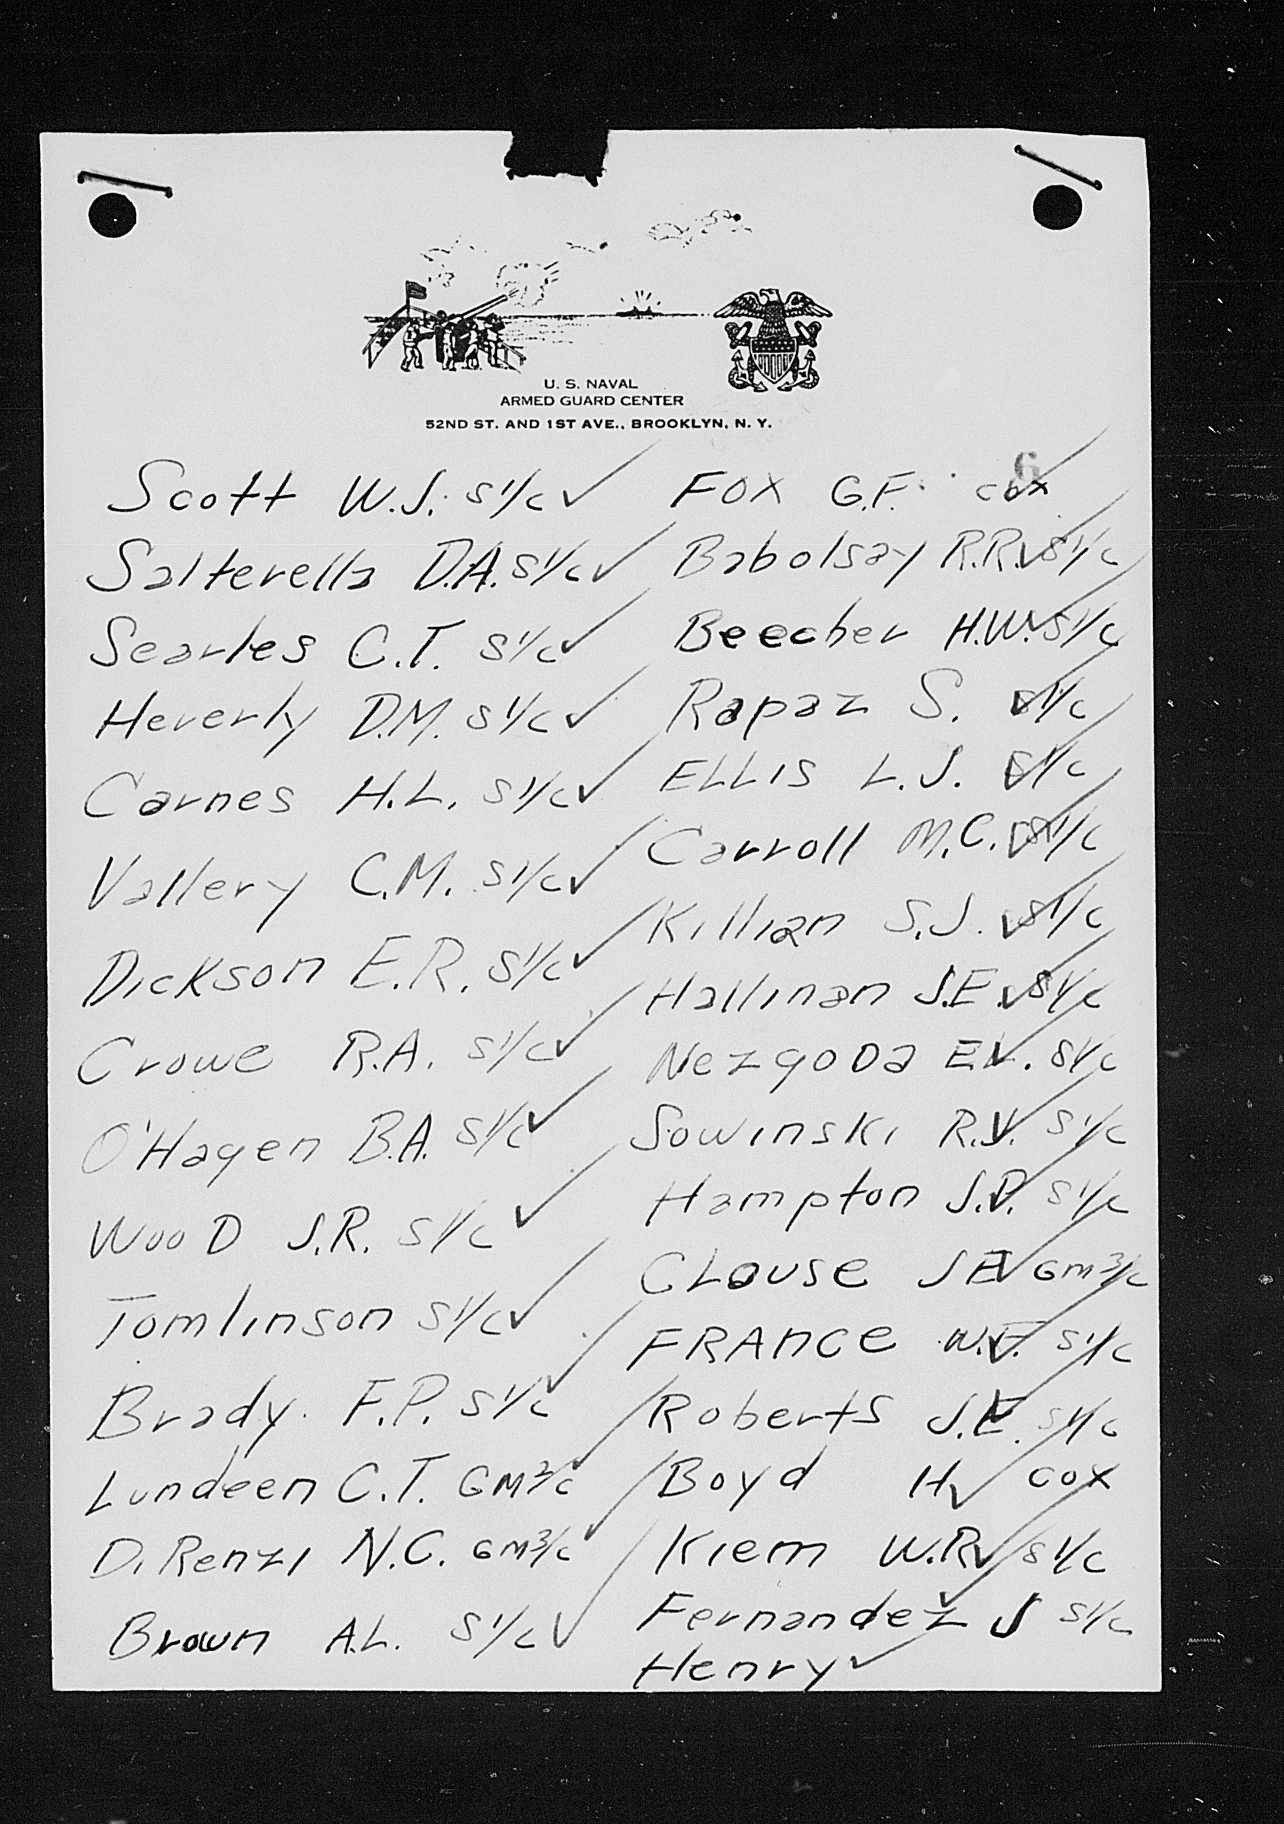 U. S. NAVAL
ARMED GUARD CENTER
52ND ST. AND 1ST AVE., BROOKLYN, N. Y.
6
Scott W.J. S1/c ✓
Salterella D.A. S1/c ✓
Searles C.T. S1/c ✓
Heverly D.M. S1/c ✓
Carnes H.L. S1/c ✓
Vallery C.M. S1/c ✓
Dickson E.R. S1/c ✓
Crowe R.A. S1/c ✓
O'Hagen B.A. S1/c ✓
Wood J.R. S1/c ✓
Tomlinson S1/c ✓
Brady F.P. S1/c ✓
Lundeen C.T. GM2/c ✓
DiRenzi N.C. GM3/c ✓
Brown A.L. S1/c ✓
FOX G.F. cox ✓
Babolsay R.R. ✓ S1/c
Beecher H.W. ✓ S1/c
Rapaz S. ✓ S1/c
ELLIS L.J. ✓ S1/c
Carroll M.C. ✓ S1/c
Killian S.J. ✓ S1/c
Hallinan J.E. ✓ S1/c
Nezgoda E.L. ✓ S1/c
Sowinski R.V. ✓ S1/c
Hampton J.D. ✓ S1/c
Clause J E ✓ GM3/c
FRANCE W.F. ✓ S1/c
Roberts J.E. ✓ S1/c
Boyd H ✓ cox
Kiem W.R. ✓ S1/c
Fernandez ✓ J S1/c
Henry ✓